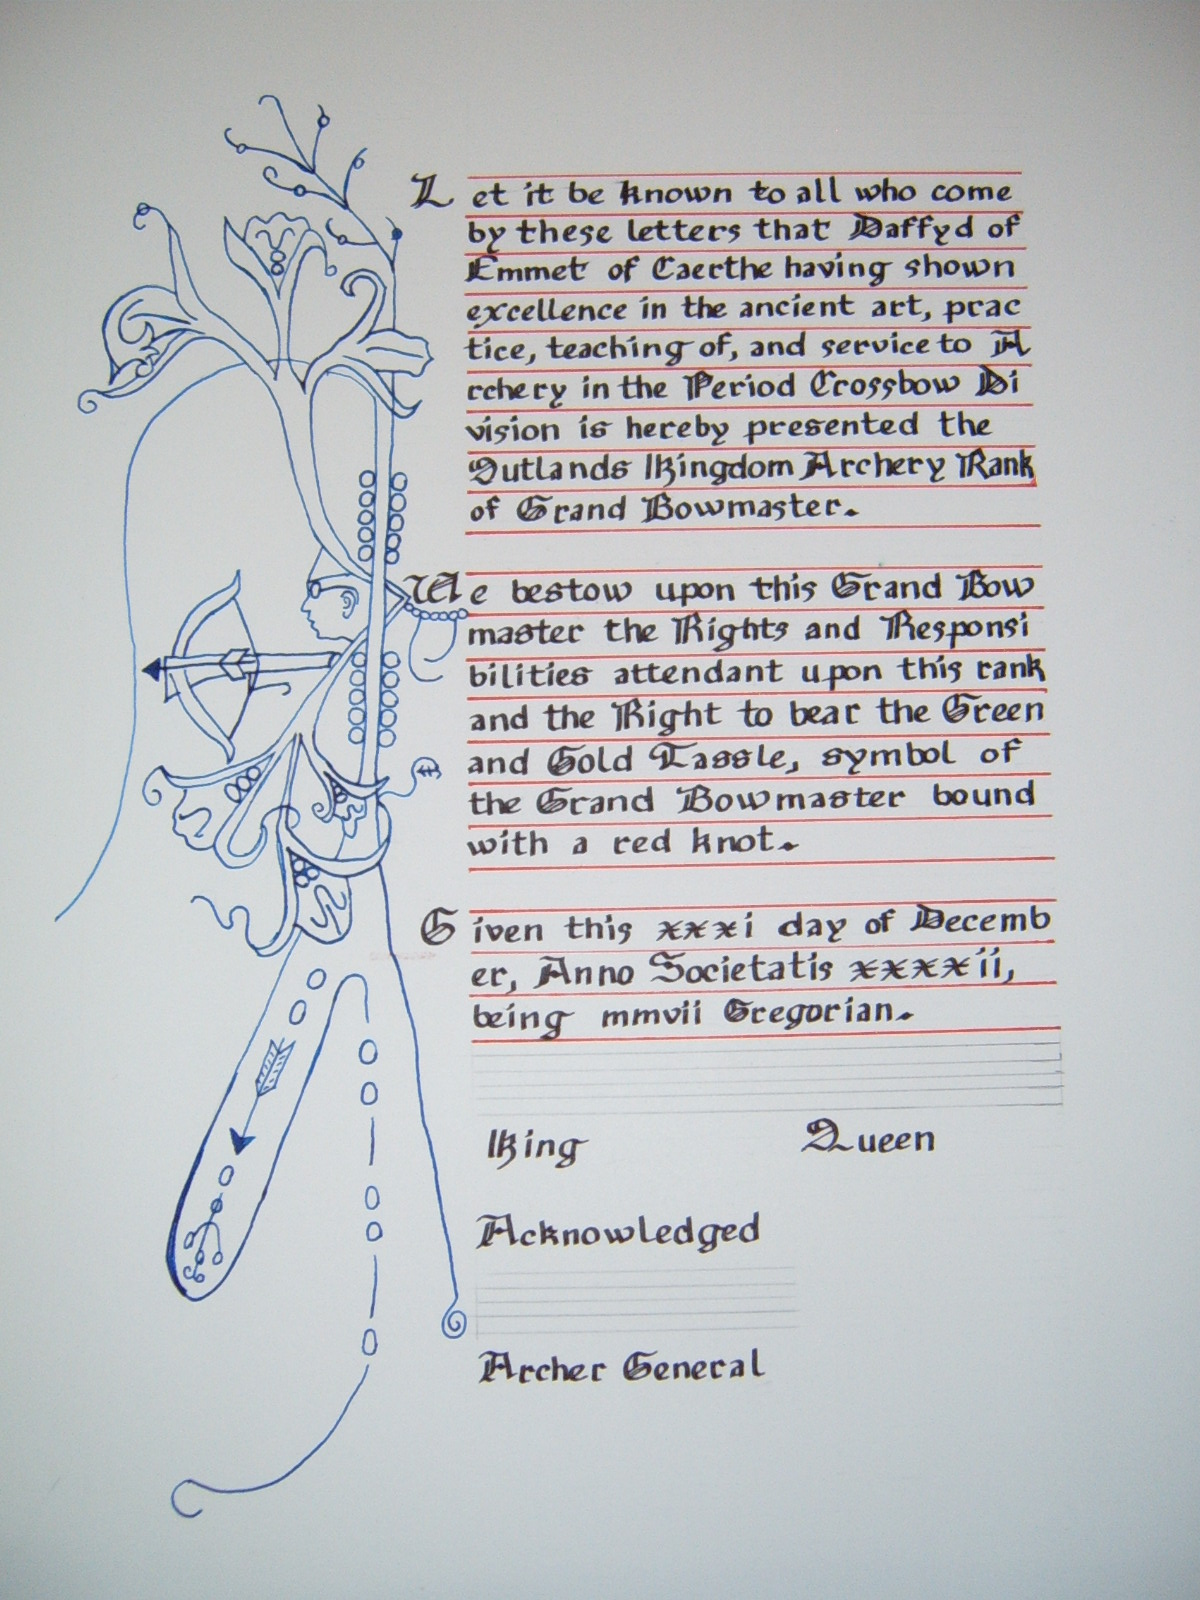 Let it be known to all who come
by these letters that Daffyd of
Emmet of Caerthe having shown
excellence in the ancient art, prac
tice, teaching of, and service to A
rchery in the Period Crossbow Di
vision is hereby presented the
Outlands Kingdom Archery Rank
of Grand Bowmaster.
We bestow upon this Grand Bow
master the Rights and Responsi
bilities attendant upon this rank
and the Right to bear the Green
and Gold Tassle, symbol of
the Grand Bowmaster bound
with a red knot.
Given this xxxi day of Decemb
er, Anno Societatis xxxxii,
being mmvii Gregorian.
King Queen
Acknowledged
Archer General